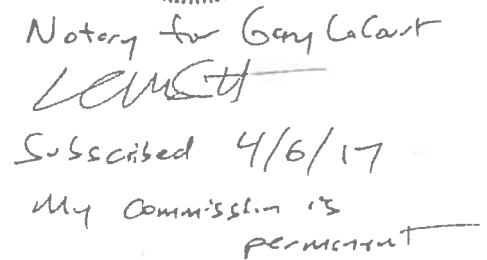 Notary for Gary LaCourt
Subscribed 4/6/17
My Commission is
permanent